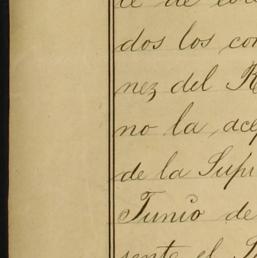 dos los con
nez del R
no la acep
de la Supr
Junio de
sente el